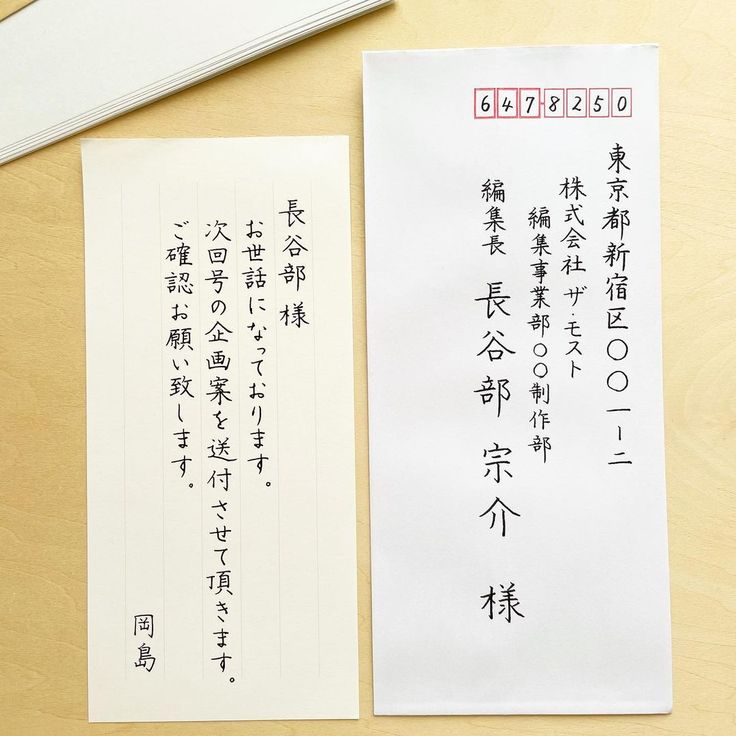 6478250
東京都新宿区〇〇一ー二
株式会社 ザ・モスト
編集事業部〇〇制作部
編集長 長谷部 宗介 様
長谷部 様
お世話になっております。
次回号の企画案を送付させて頂きます。
ご確認お願い致します。
岡島